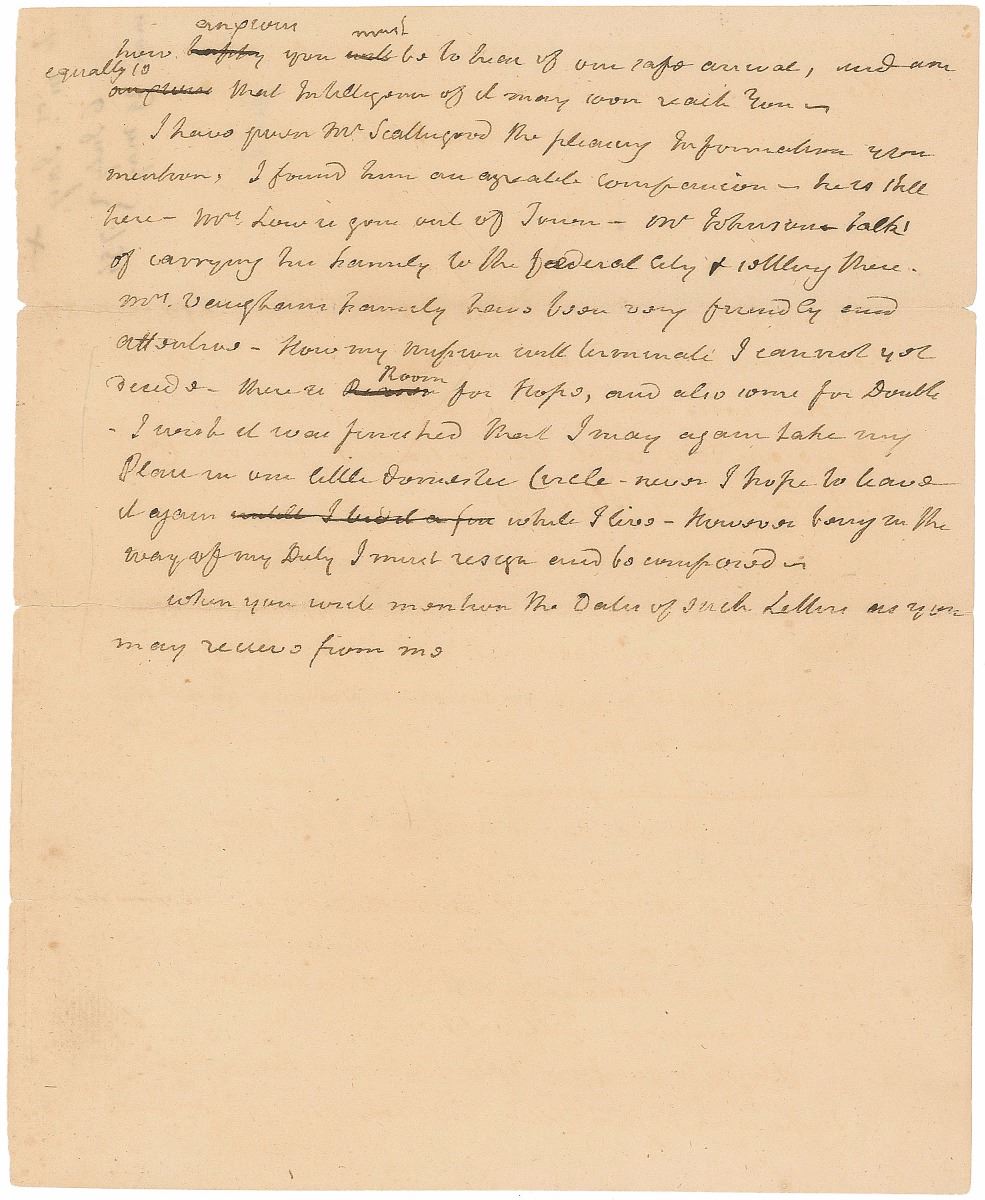 anxious must
how happy you will be to hear of our safe arrival, and am
equally so
anxious that Intelligence of it may soon reach You –
I have given Mr. Scallugood the pleasing Information you
mention, I found him an agreable companion – he is still
here – Mr. Low is gone out of Town – Mr Johnson talks
of carrying his family to the foederal City & settling there.
Mrs. Vaughans family have been very friendly and
attentive – How my mission will terminate I cannot yet
Room
decide – there is for Hope, and also some for Doubt
– I wish it was finished that I may again take my
Place in our little domestic Circle – never I hope to leave
it again untill I bid it a far while I live – However being in the
way of my Duty I must resign and be composed –
when you write mention the Dates of such Letters as you
may receive from me